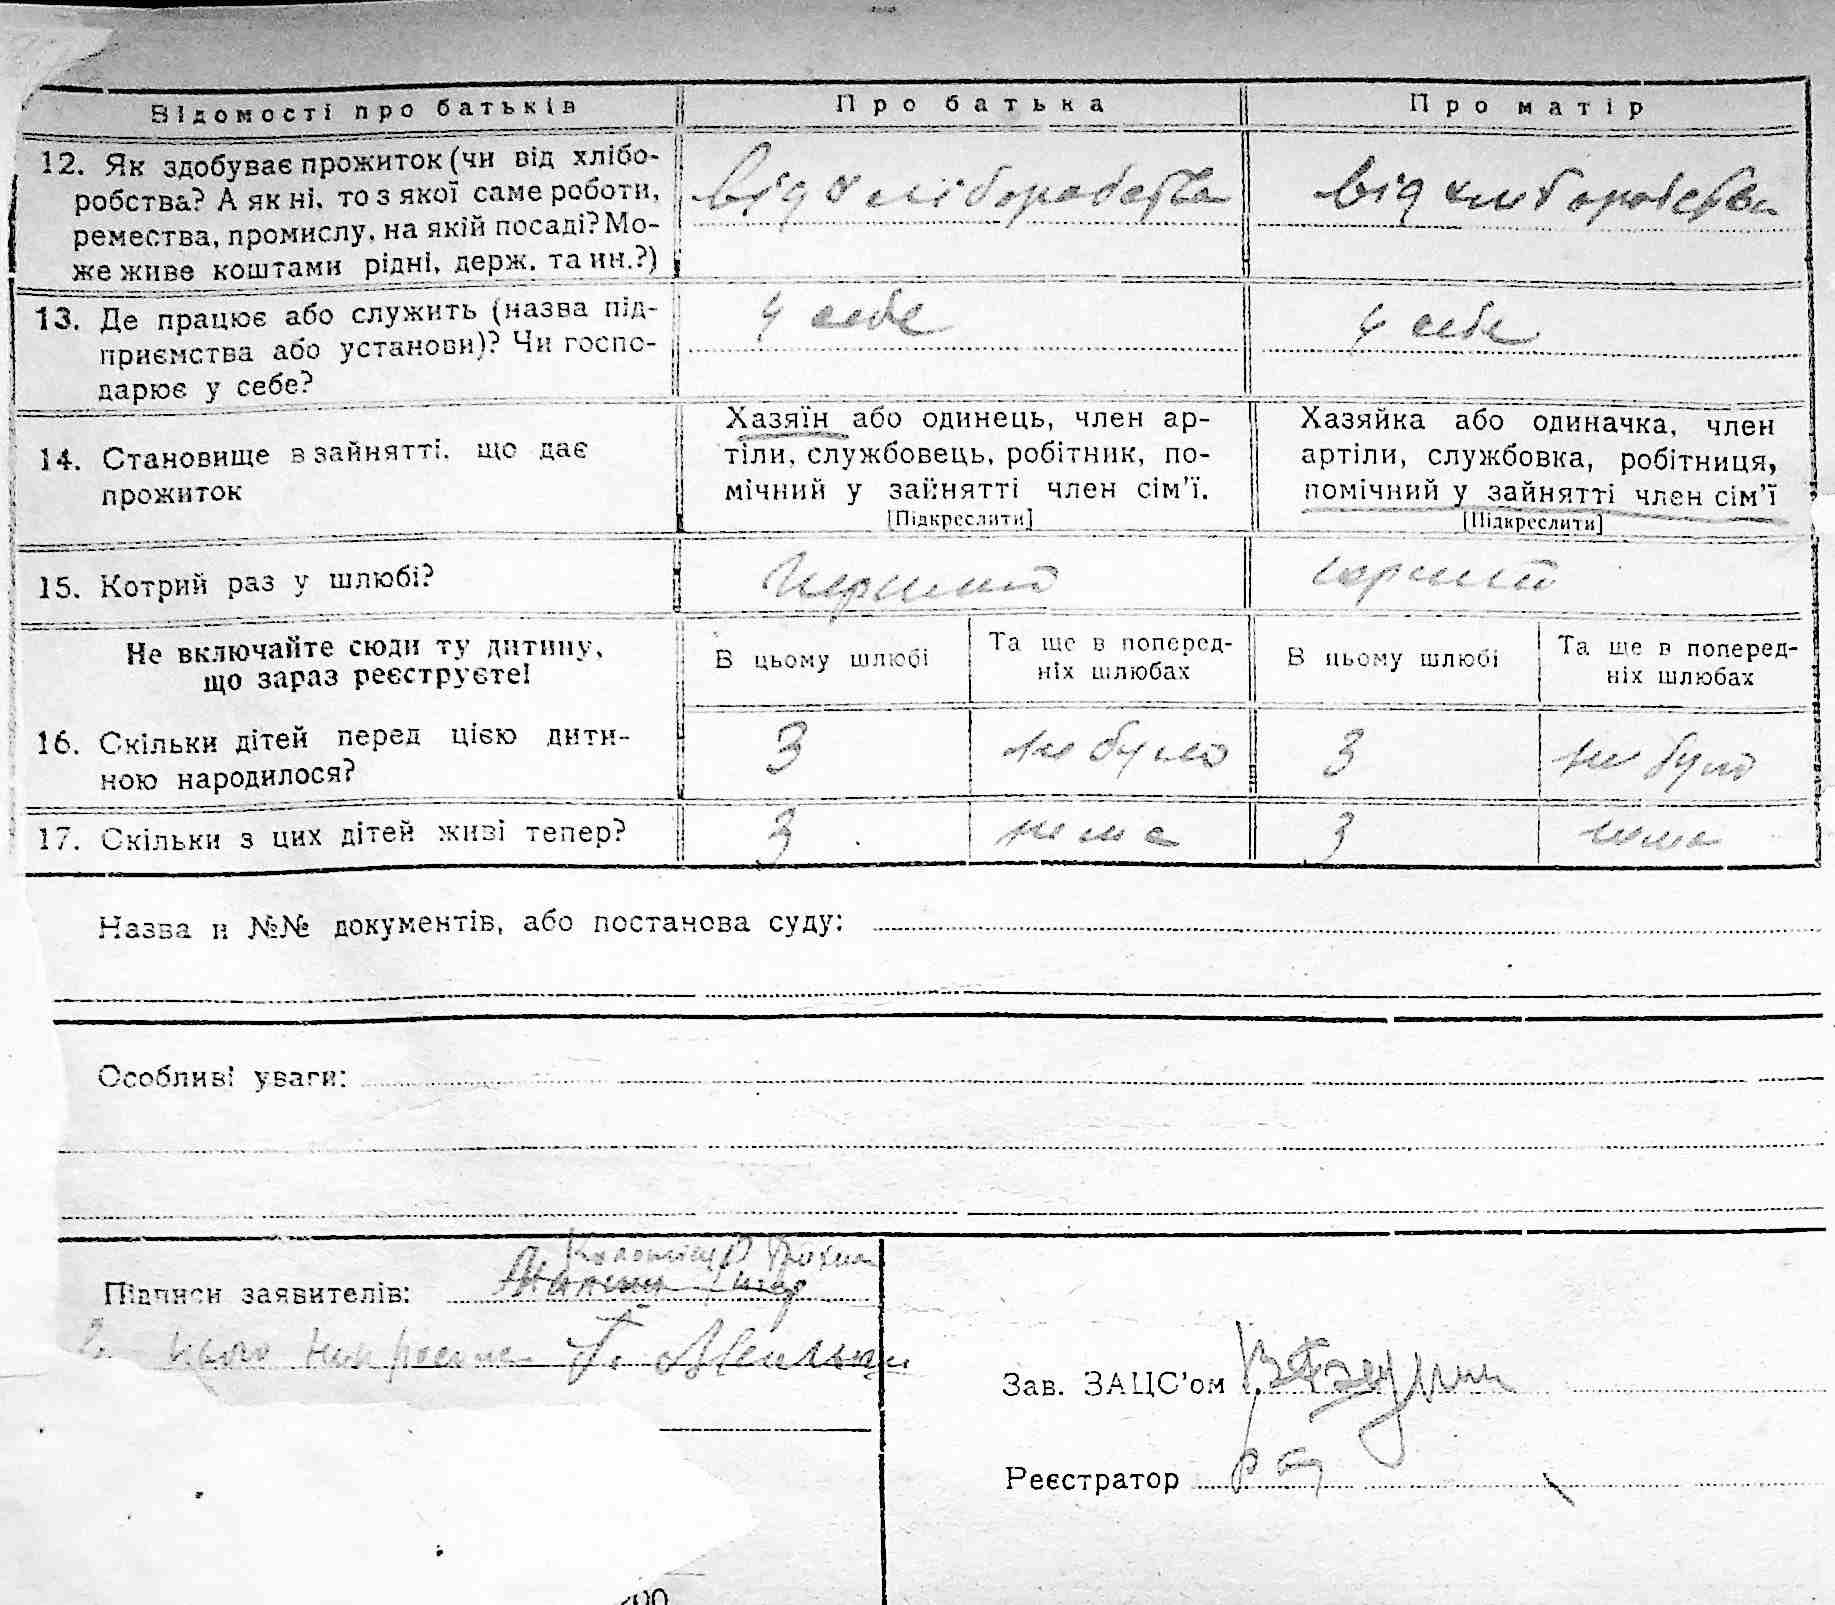 Відомості про батьків Про батька Про матір
12. Як здобуває прожиток (чи від хлібо- від хліборобства від хліборобства
робства? А як ні, то з якої саме роботи,
ремества, промислу, на якій посаді? Мо-
же живе коштами рідні, держ. та ин.?)
13. Де працює або служить (назва під- у себе у себе
приємства або установи)? Чи госпо-
дарює у себе?
14. Становище в зайнятті, що дає
прожиток
Хазяїн або одинець, член ар-
тіли, службовець, робітник, по-
мічний у зайнятті член сім'ї.
[Підкреслити]
Хазяйка або одиначка, член
артіли, службовка, робітниця,
помічний у зайнятті член сім'ї
[Підкреслити]
15. Котрий раз у шлюбі? перший перший
Не включайте сюди ту дитину,
що зараз реєструєте!
В цьому шлюбі
Та ще в поперед-
ніх шлюбах
В цьому шлюбі
Та ще в поперед-
ніх шлюбах
16. Скільки дітей перед цією дити-
ною народилося?
3 не було 3 не було
17. Скільки з цих дітей живі тепер? 3 нема 3 нема
Назва и №№ документів, або постанова суду:
Особливі уваги:
Підписи заявителів:
Зав. ЗАЦС'ом
Реєстратор